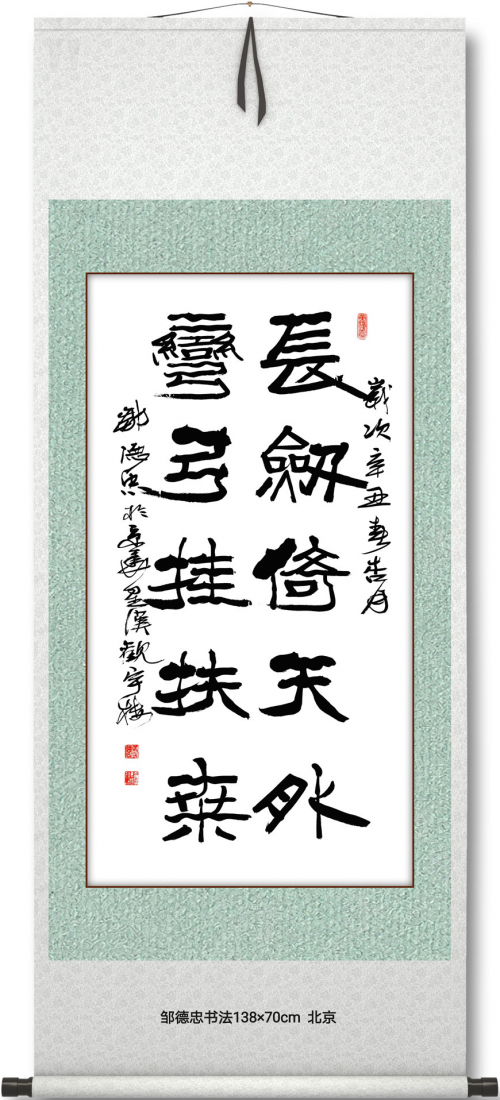 歲次辛丑春吉月
長劒倚天外
彎弓挂扶桒
鄒德忠於京觀宇樓
邹德忠书法138×70cm 北京